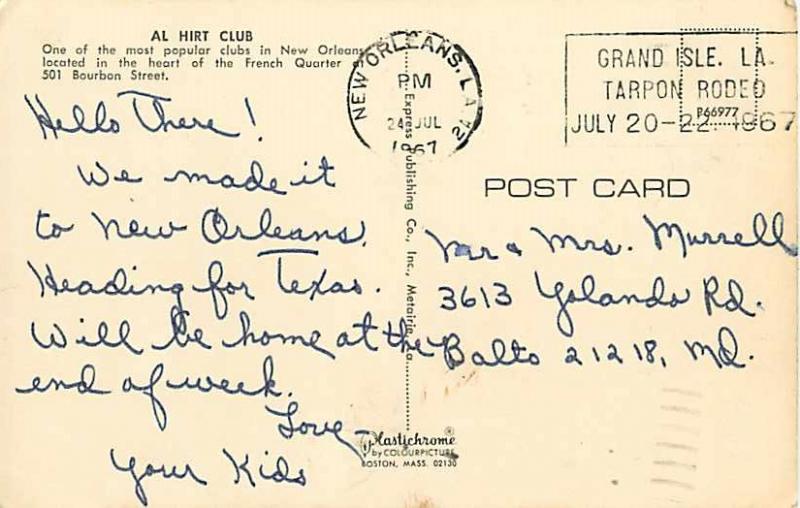 AL HIRT CLUB
One of the most popular clubs in New Orleans
located in the heart of the French Quarter
501 Bourbon Street.
NEW ORLEANS, LA
PM
24 JUL
1967
GRAND ISLE. LA.
TARPON RODEO
JULY 20-22 1967
P66977
POST CARD
Hello There!
We made it
to New Orleans.
Heading for Texas.
Will be home at the
end of week.
Love
Your Kids
Express Publishing Co., Inc., Metairie, La.
Mr & Mrs. Murrell
3613 Yolando Rd.
Balto 21218, Md.
Plastichrome®
by COLOURPICTURE
BOSTON, MASS. 02130